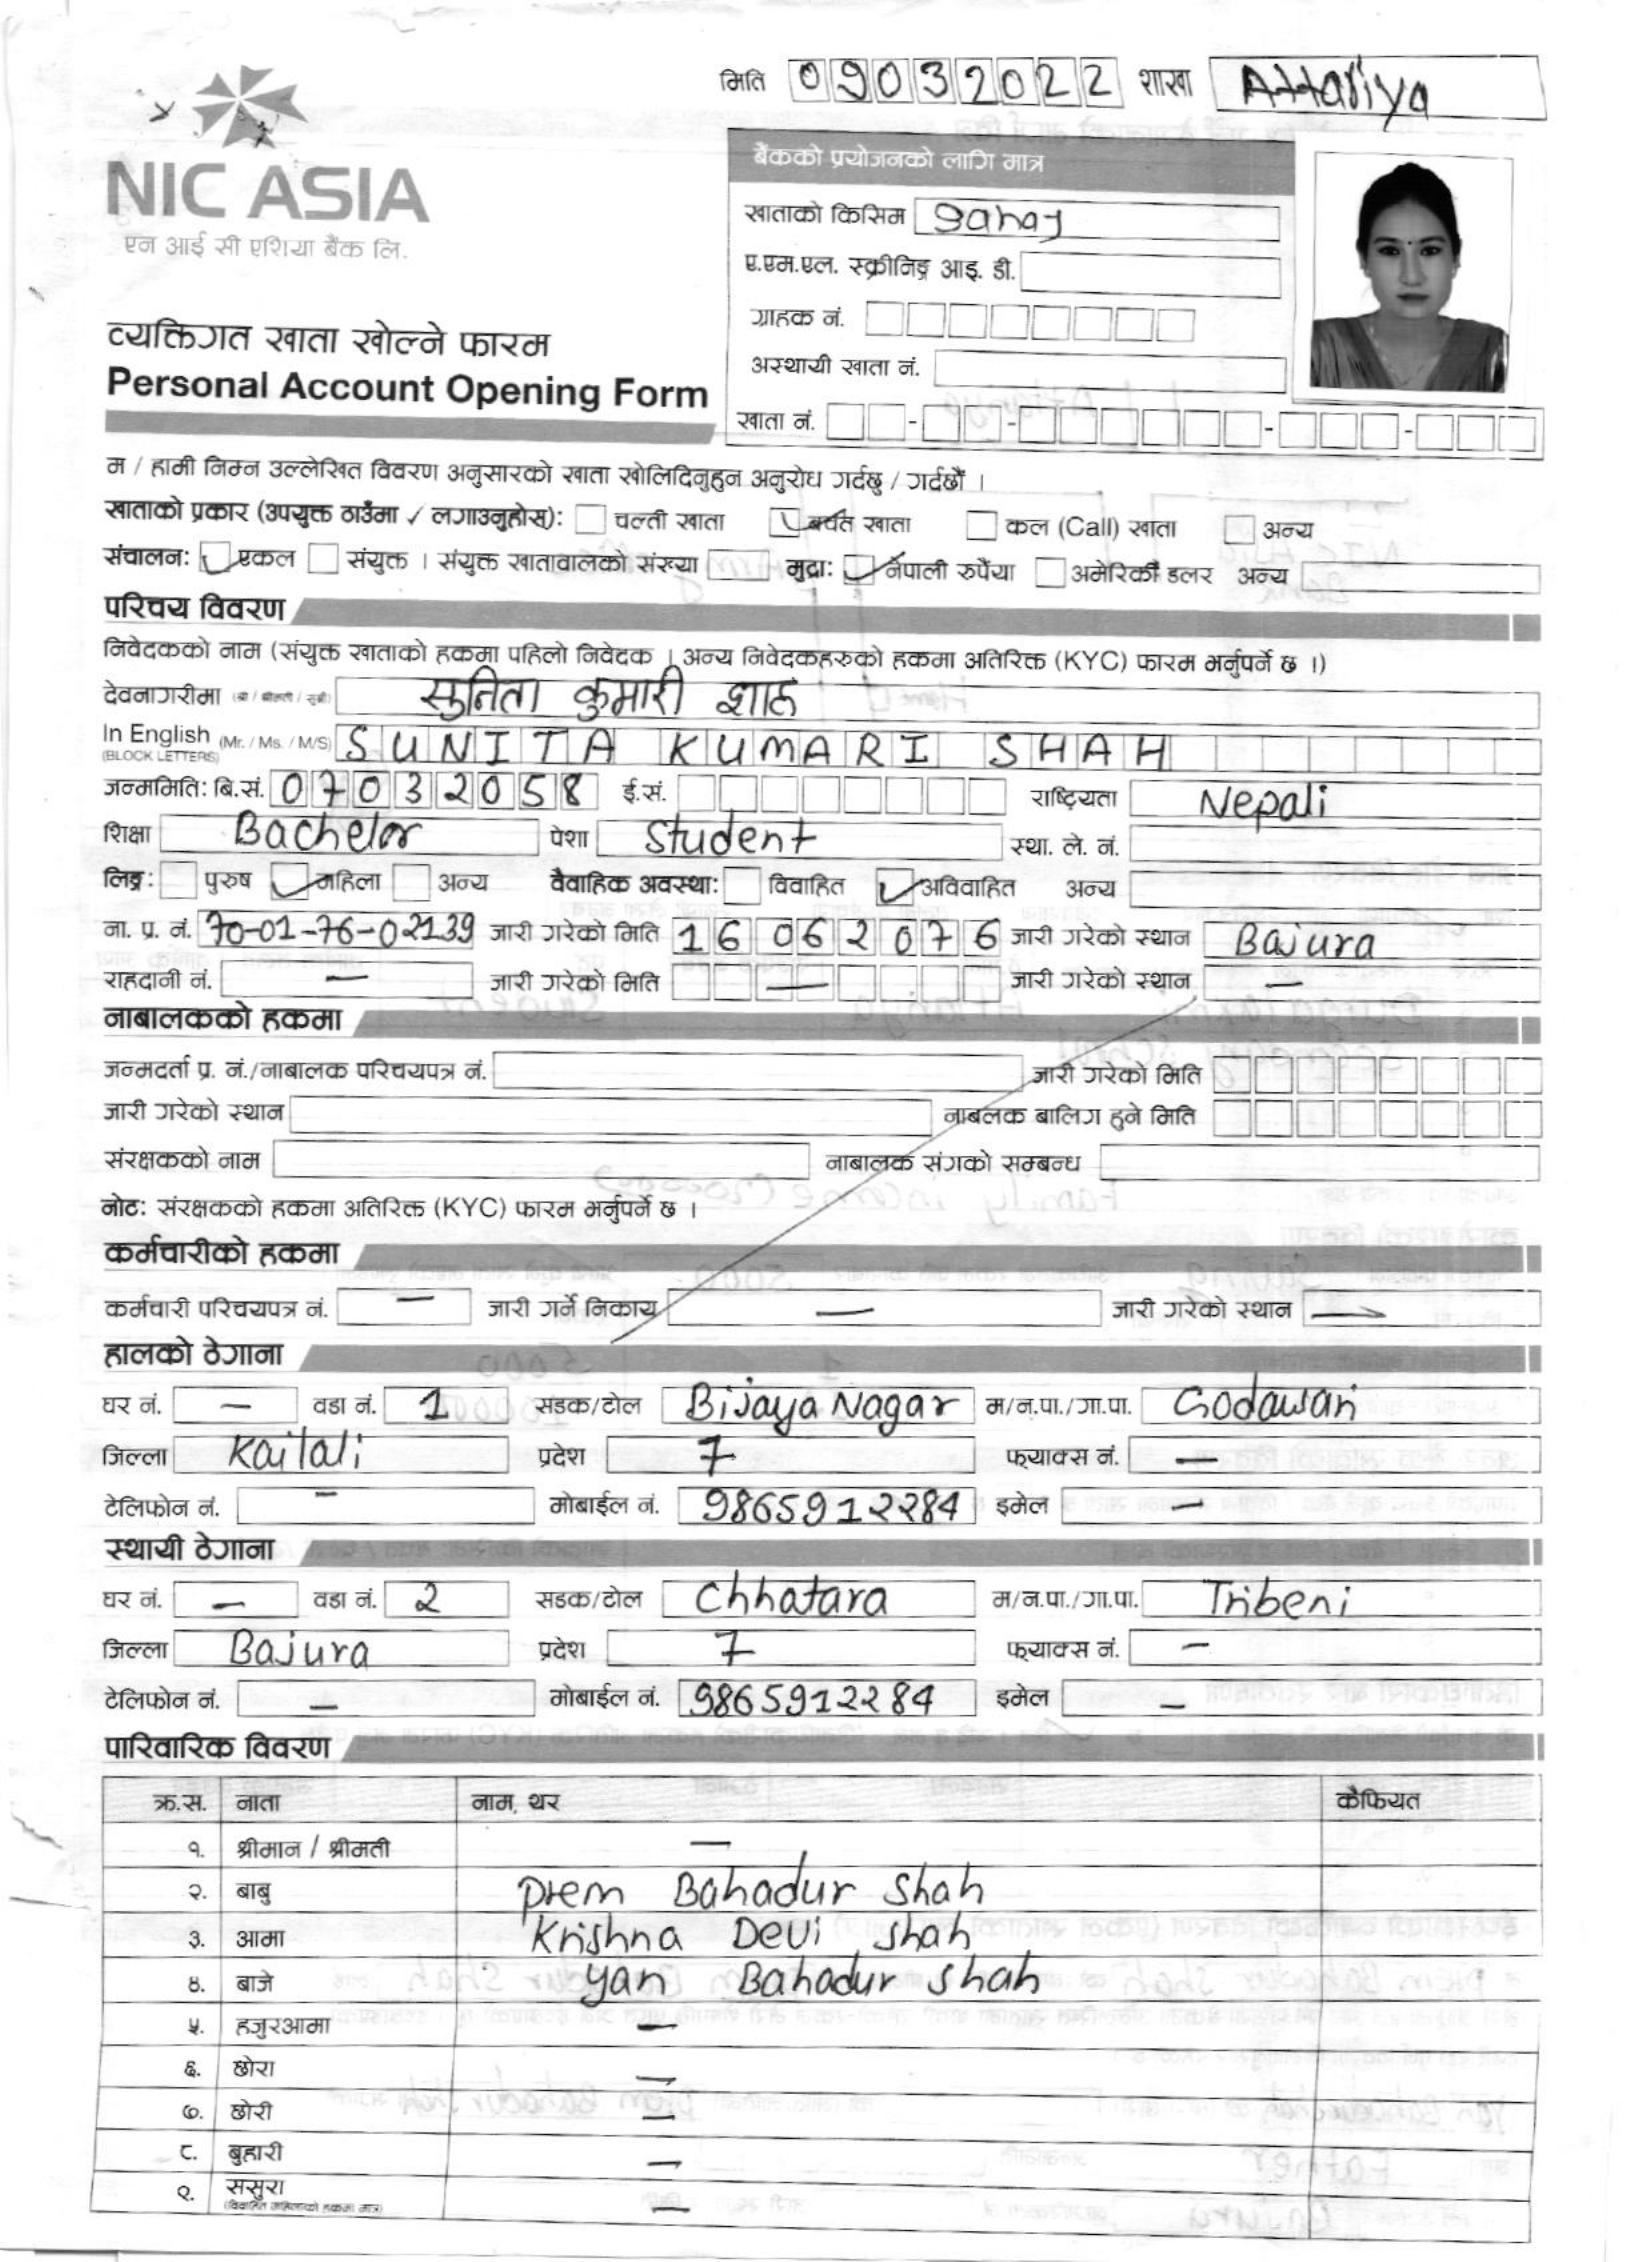 मिति 09032022 शाखा Attariya
NIC ASIA
एन आई सी एशिया बैंक लि.
बैंकको प्रयोजनको लागि मात्र
खाताको किसिम Sahaj
ए.एम.एल. स्क्रीनिङ्ग आइ. डी.
ग्राहक नं.
अस्थायी खाता नं.
खाता नं. - - - -
व्यक्तिगत खाता खोल्ने फारम
Personal Account Opening Form
म / हामी निम्न उल्लेखित विवरण अनुसारको खाता खोलिदिनुहुन अनुरोध गर्दछु / गर्दछौं ।
खाताको प्रकार (उपयुक्त ठाउँमा ✓ लगाउनुहोस): चल्ती खाता ✓ बचत खाता कल (Call) खाता अन्य
संचालन: ✓ एकल संयुक्त । संयुक्त खातावालको संख्या मुद्रा: ✓ नेपाली रुपैंया अमेरिकी डलर अन्य
परिचय विवरण
निवेदकको नाम (संयुक्त खाताको हकमा पहिलो निवेदक । अन्य निवेदकहरुको हकमा अतिरिक्त (KYC) फारम भर्नुपर्ने छ ।)
देवनागरीमा (श्री / श्रीमती / सुश्री) सुनिता कुमारी शाह
In English (Mr. / Ms. / M/S) SUNITA KUMARI SHAH
(BLOCK LETTERS)
जन्ममिति: बि.सं. 07032058 ई.सं. राष्ट्रियता Nepali
शिक्षा Bachelor पेशा Student स्था. ले. नं.
लिङ्ग: पुरुष ✓ महिला अन्य वैवाहिक अवस्था: विवाहित ✓ अविवाहित अन्य
ना. प्र. नं. 70-01-76-02139 जारी गरेको मिति 16062076 जारी गरेको स्थान Bajura
राहदानी नं. — जारी गरेको मिति — जारी गरेको स्थान —
नाबालकको हकमा
जन्मदर्ता प्र. नं./नाबालक परिचयपत्र नं. जारी गरेको मिति
जारी गरेको स्थान नाबलक बालिग हुने मिति
संरक्षकको नाम नाबालक संगको सम्बन्ध
नोट: संरक्षकको हकमा अतिरिक्त (KYC) फारम भर्नुपर्ने छ ।
कर्मचारीको हकमा
कर्मचारी परिचयपत्र नं. — जारी गर्ने निकाय — जारी गरेको स्थान —
हालको ठेगाना
घर नं. — वडा नं. 1 सडक/टोल Bijaya Nagar म/न.पा./गा.पा. Godawari
जिल्ला Kailali प्रदेश 7 फ्याक्स नं. —
टेलिफोन नं. — मोबाईल नं. 9865912284 इमेल —
स्थायी ठेगाना
घर नं. — वडा नं. 2 सडक/टोल Chhatara म/न.पा./गा.पा. Tribeni
जिल्ला Bajura प्रदेश 7 फ्याक्स नं. —
टेलिफोन नं. — मोबाईल नं. 9865912284 इमेल —
पारिवारिक विवरण
क्र.स. नाता नाम, थर कैफियत
१. श्रीमान / श्रीमती —
२. बाबु Prem Bahadur Shah
३. आमा Krishna Devi Shah
४. बाजे Yan Bahadur Shah
५. हजुरआमा —
६. छोरा —
७. छोरी —
८. बुहारी —
९. ससुरा —
(विवाहित महिलाको हकमा मात्र)